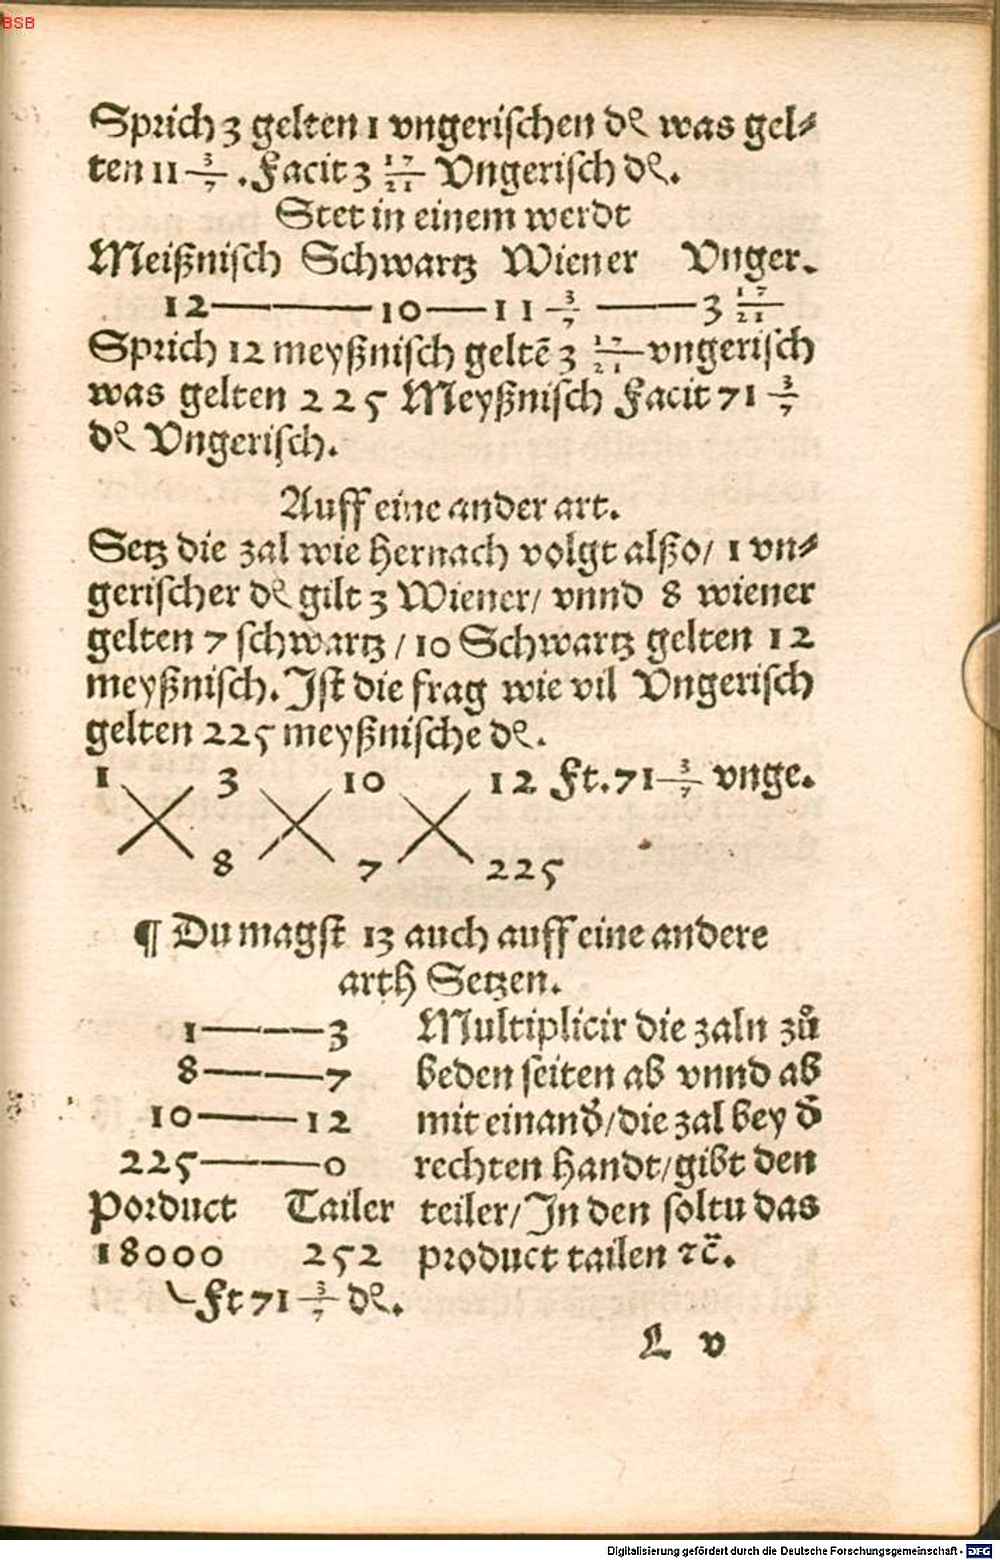 BSB
Sprich 3 gelten 1 vngerischen dꝛ was gel⸗
ten 11 3/7 . Facit 3 17/21 Vngerisch dꝛ.
Stet in einem werdt
Meißnisch Schwartz Wiener Vnger.
12——10—11 3/7 ——3 17/21
Sprich 12 meyßnisch geltē 3 17/21 vngerisch
was gelten 225 Meyßnisch Facit 71 3/7
dꝛ Vngerisch.
Auff eine ander art.
Setz die zal wie hernach volgt alßo/ 1 vn⸗
gerischer dꝛ gilt 3 Wiener/ vnnd 8 wiener
gelten 7 schwartz / 10 Schwartz gelten 12
meyßnisch. Ist die frag wie vil Vngerisch
gelten 225 meyßnische dꝛ.
1 3 10 12 Ft. 71 3/7 vnge.
8 7 225
¶ Du magst 13 auch auff eine andere
arth Setzen.
1———3 Multiplicir die zaln zů
8———7 beden seiten ab vnnd ab
10———12 mit einand̄/die zal bey d̄
225———0 rechten handt/gibt den
Porduct Tailer teiler/In den soltu das
18000 252 product tailen ⁊c̄.
Ft 71 3/7 dꝛ.
L v
Digitalisierung gefördert durch die Deutsche Forschungsgemeinschaft - DFG